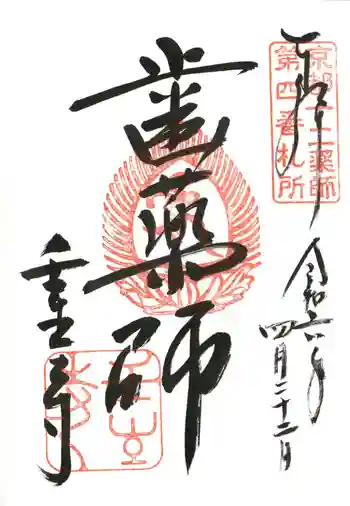 奉拝
京都十二薬師
第四番札所
令和六年
四月二十二日
歯薬師
壺寺